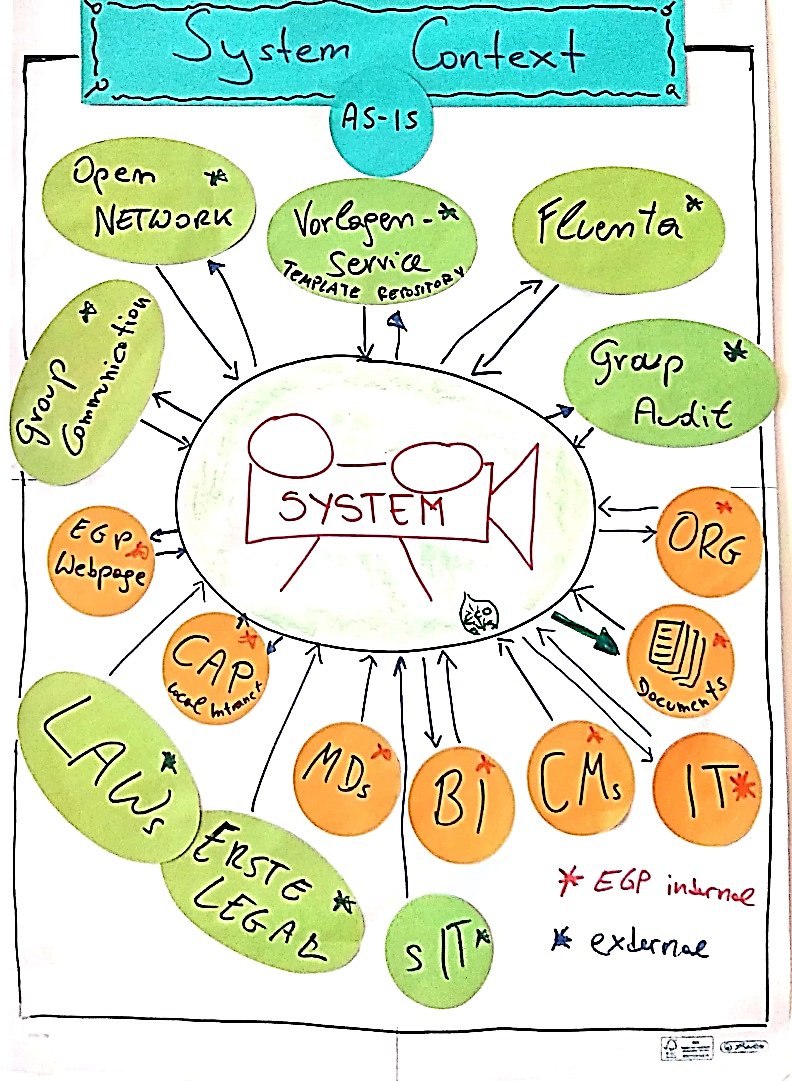 System Context
AS-IS
Open
NETWORK
Vorlagen-
Service
TEMPLATE REPOSITORY
Fluenta
Group
Communication
Group
Audit
SYSTEM
EGP
Webpage
ORG
CAP
Local Intranet
Documents
LAWs
MDs
BI
CMs
IT
ERSTE
LEGAL
s IT
EGP internal
external